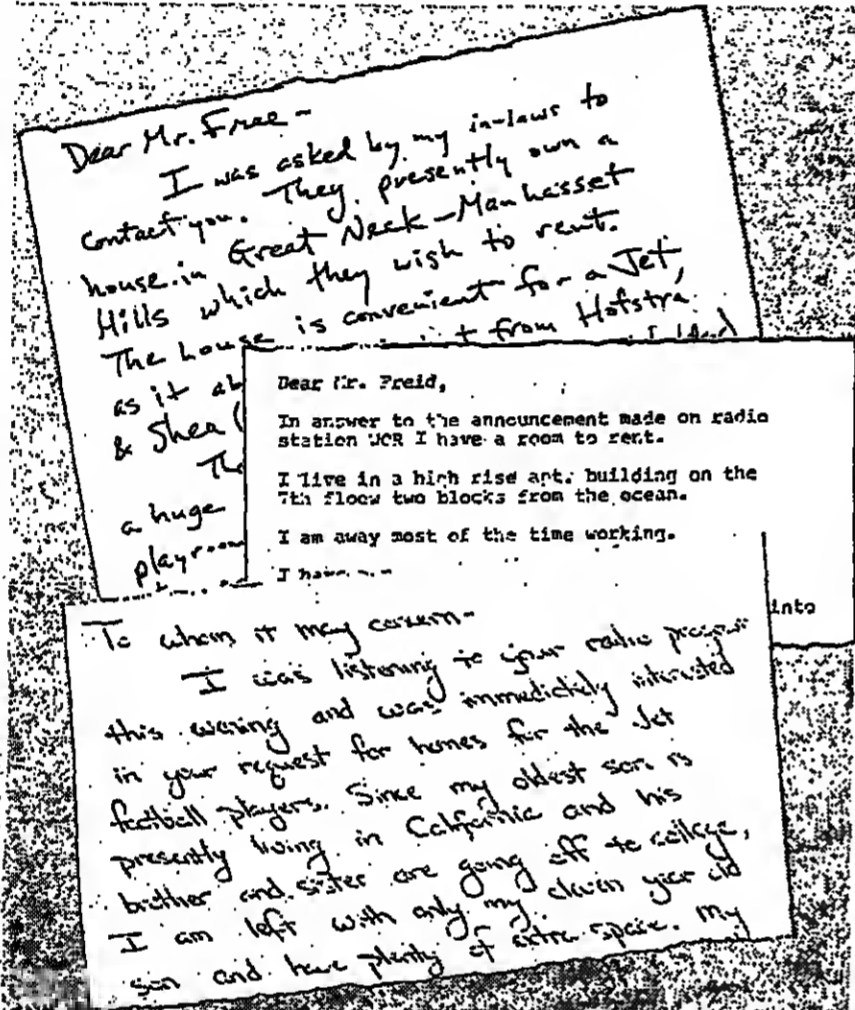 Dear Mr. Free -
I was asked by my in-laws to
contact you. They presently own a
house in Great Neck - Manhasset
Hills which they wish to rent.
The house is convenient for a Jet,
as it ab t from Hofstra
& Shea (
The
a huge
playroom
Dear Mr. Freid,
In answer to the announcement made on radio
station WCR I have a room to rent.
I live in a high rise apt. building on the
7th floow two blocks from the ocean.
I am away most of the time working.
I have
into
To whom it may concern-
I was listening to your radio program
this evening and was immediately interested
in your request for homes for the Jet
football players. Since my oldest son is
presently living in California and his
brother and sister are going off to college,
I am left with only my eleven year old
son and have plenty of extra space. My